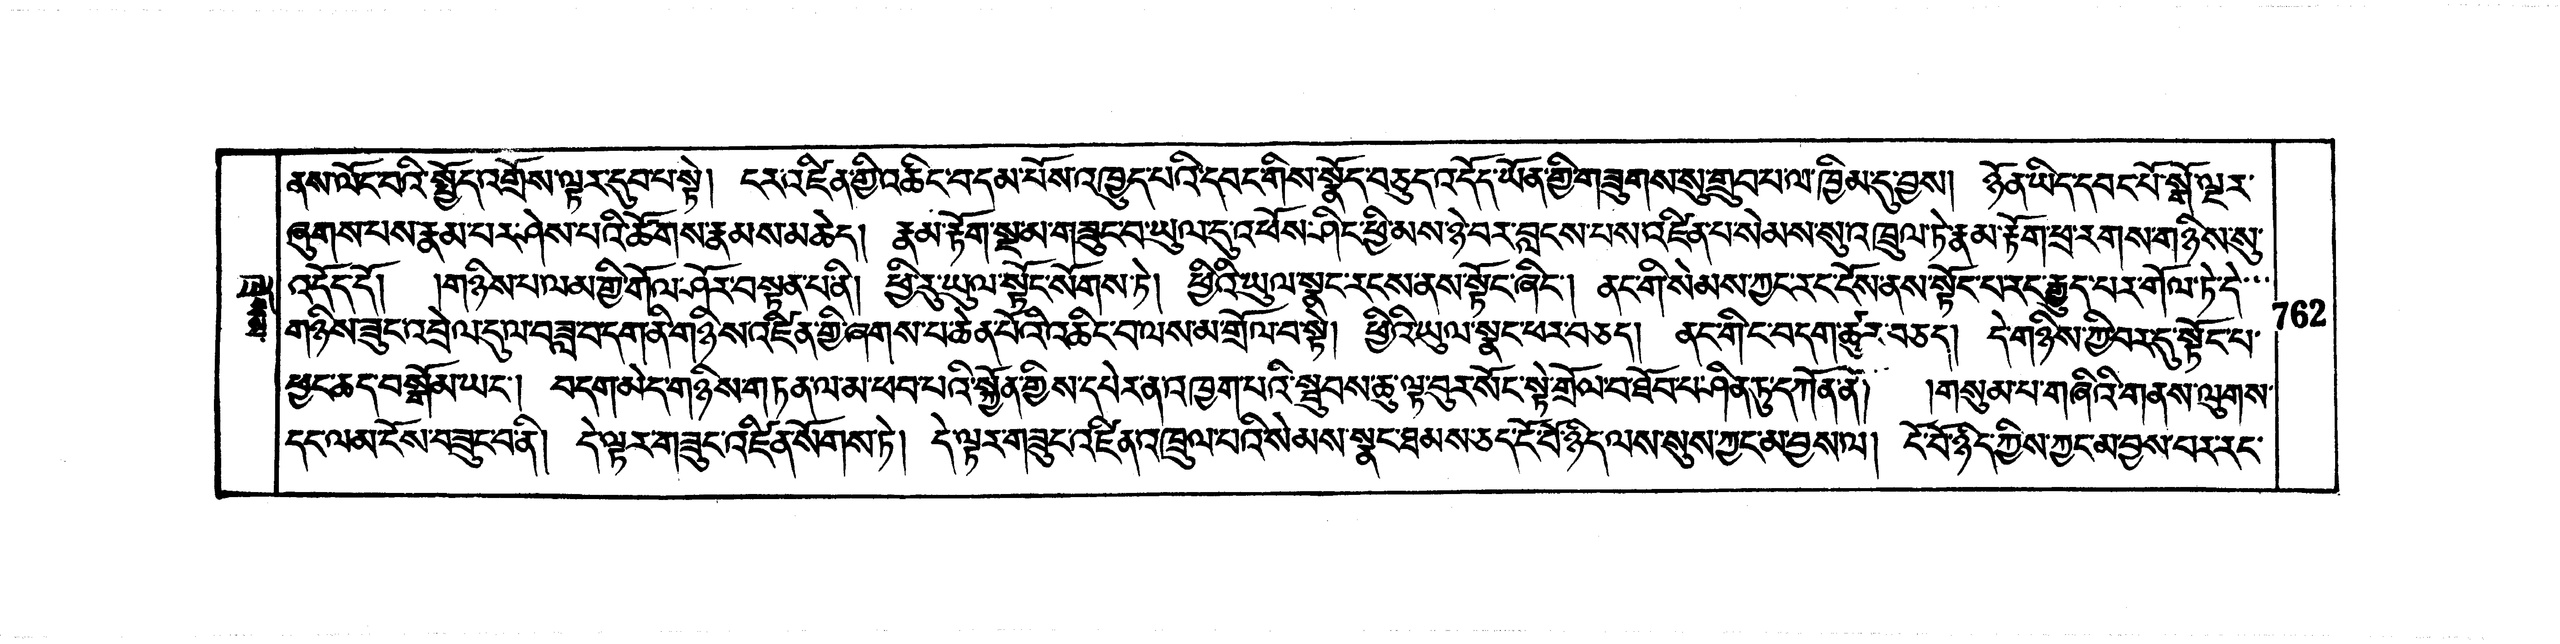 ནས་ལོང་བའི་སྤྱོད་འགྲོས་ལྟར་དུབ་པ་སྟེ། ངར་འཛིན་གྱི་འཆིང་བ་དམ་པོས་འཁྱུད་པའི་དབང་གིས་སྣོད་བཅུད་འདོད་ཡོན་གྱི་གཟུགས་སུ་གྲུབ་པ་ལ་ཁྱིམ་དུ་བྱས། ཉོན་ཡིད་དབང་པོ་སྒོ་ལྔར་
ཞུགས་པས་རྣམ་པར་ཤེས་པའི་ཚོགས་རྣམས་མཆེད། རྣམ་རྟོག་སྔམ་གཟུང་བ་ཡུལ་དུ་འཕོས་ཤིང་ཕྱི་མས་ཉེ་བར་བླངས་པས་འཛིན་པ་སེམས་སུ་འཁྲུལ་ཏེ་རྣམ་རྟོག་ཕྲ་རགས་གཉིས་སུ་
འདོད་དོ། །གཉིས་པ་ལམ་གྱི་གོལ་ཤོར་བསྟན་པ་ནི། ཕྱི་རུ་ཡུལ་སྟོང་སོགས་ཏེ། ཕྱིའི་ཡུལ་སྣང་རངས་ནས་སྟོང་ཞིང་། ནང་གི་སེམས་ཀྱང་རང་ངོས་ནས་སྟོང་པ་རང་རྒྱུད་པར་གོལ་ཏེ་དེ་
གཉིས་ཟུང་འབྲེལ་དུ་ལ་བཟླ་བ་དག་ནི་གཉིས་འཛིན་གྱི་ཞགས་པ་ཆེན་པོའི་འཆིང་བ་ལས་མ་གྲོལ་བ་སྟེ། ཕྱིའི་ཡུལ་སྣང་ཕར་བཅད། ནང་གི་ང་བདག་ཚུར་བཅད། དེ་གཉིས་ཀྱི་བར་དུ་སྟོང་པ་
ཕྱང་ཆད་བསྒོམ་ཡང་། བདག་མེད་གཉིས་གཏན་ལ་མ་ཕབ་པའི་སྐྱོན་གྱིས་དཔེར་ན་འཁྱག་པའི་སྦུབས་ཆུ་ལྟ་བུར་སོང་སྟེ་གྲོལ་བ་ཐོབ་པ་ཤིན་ཏུ་དཀོན་ནོ། །གསུམ་པ་གཞིའི་གནས་ལུགས་
དང་ལམ་ངོས་བཟུང་བ་ནི། དེ་ལྟར་གཟུང་འཛིན་སོགས་ཏེ། དེ་ལྟར་གཟུང་འཛིན་འཁྲུལ་བའི་སེམས་སྣང་ཐམས་ཅད་ངོ་བོ་ཉིད་ལས་སུས་ཀྱང་མ་བྱས་ལ། ངོ་བོ་ཉིད་ཀྱིས་ཀྱང་མ་བྱས་བར་རང་
762